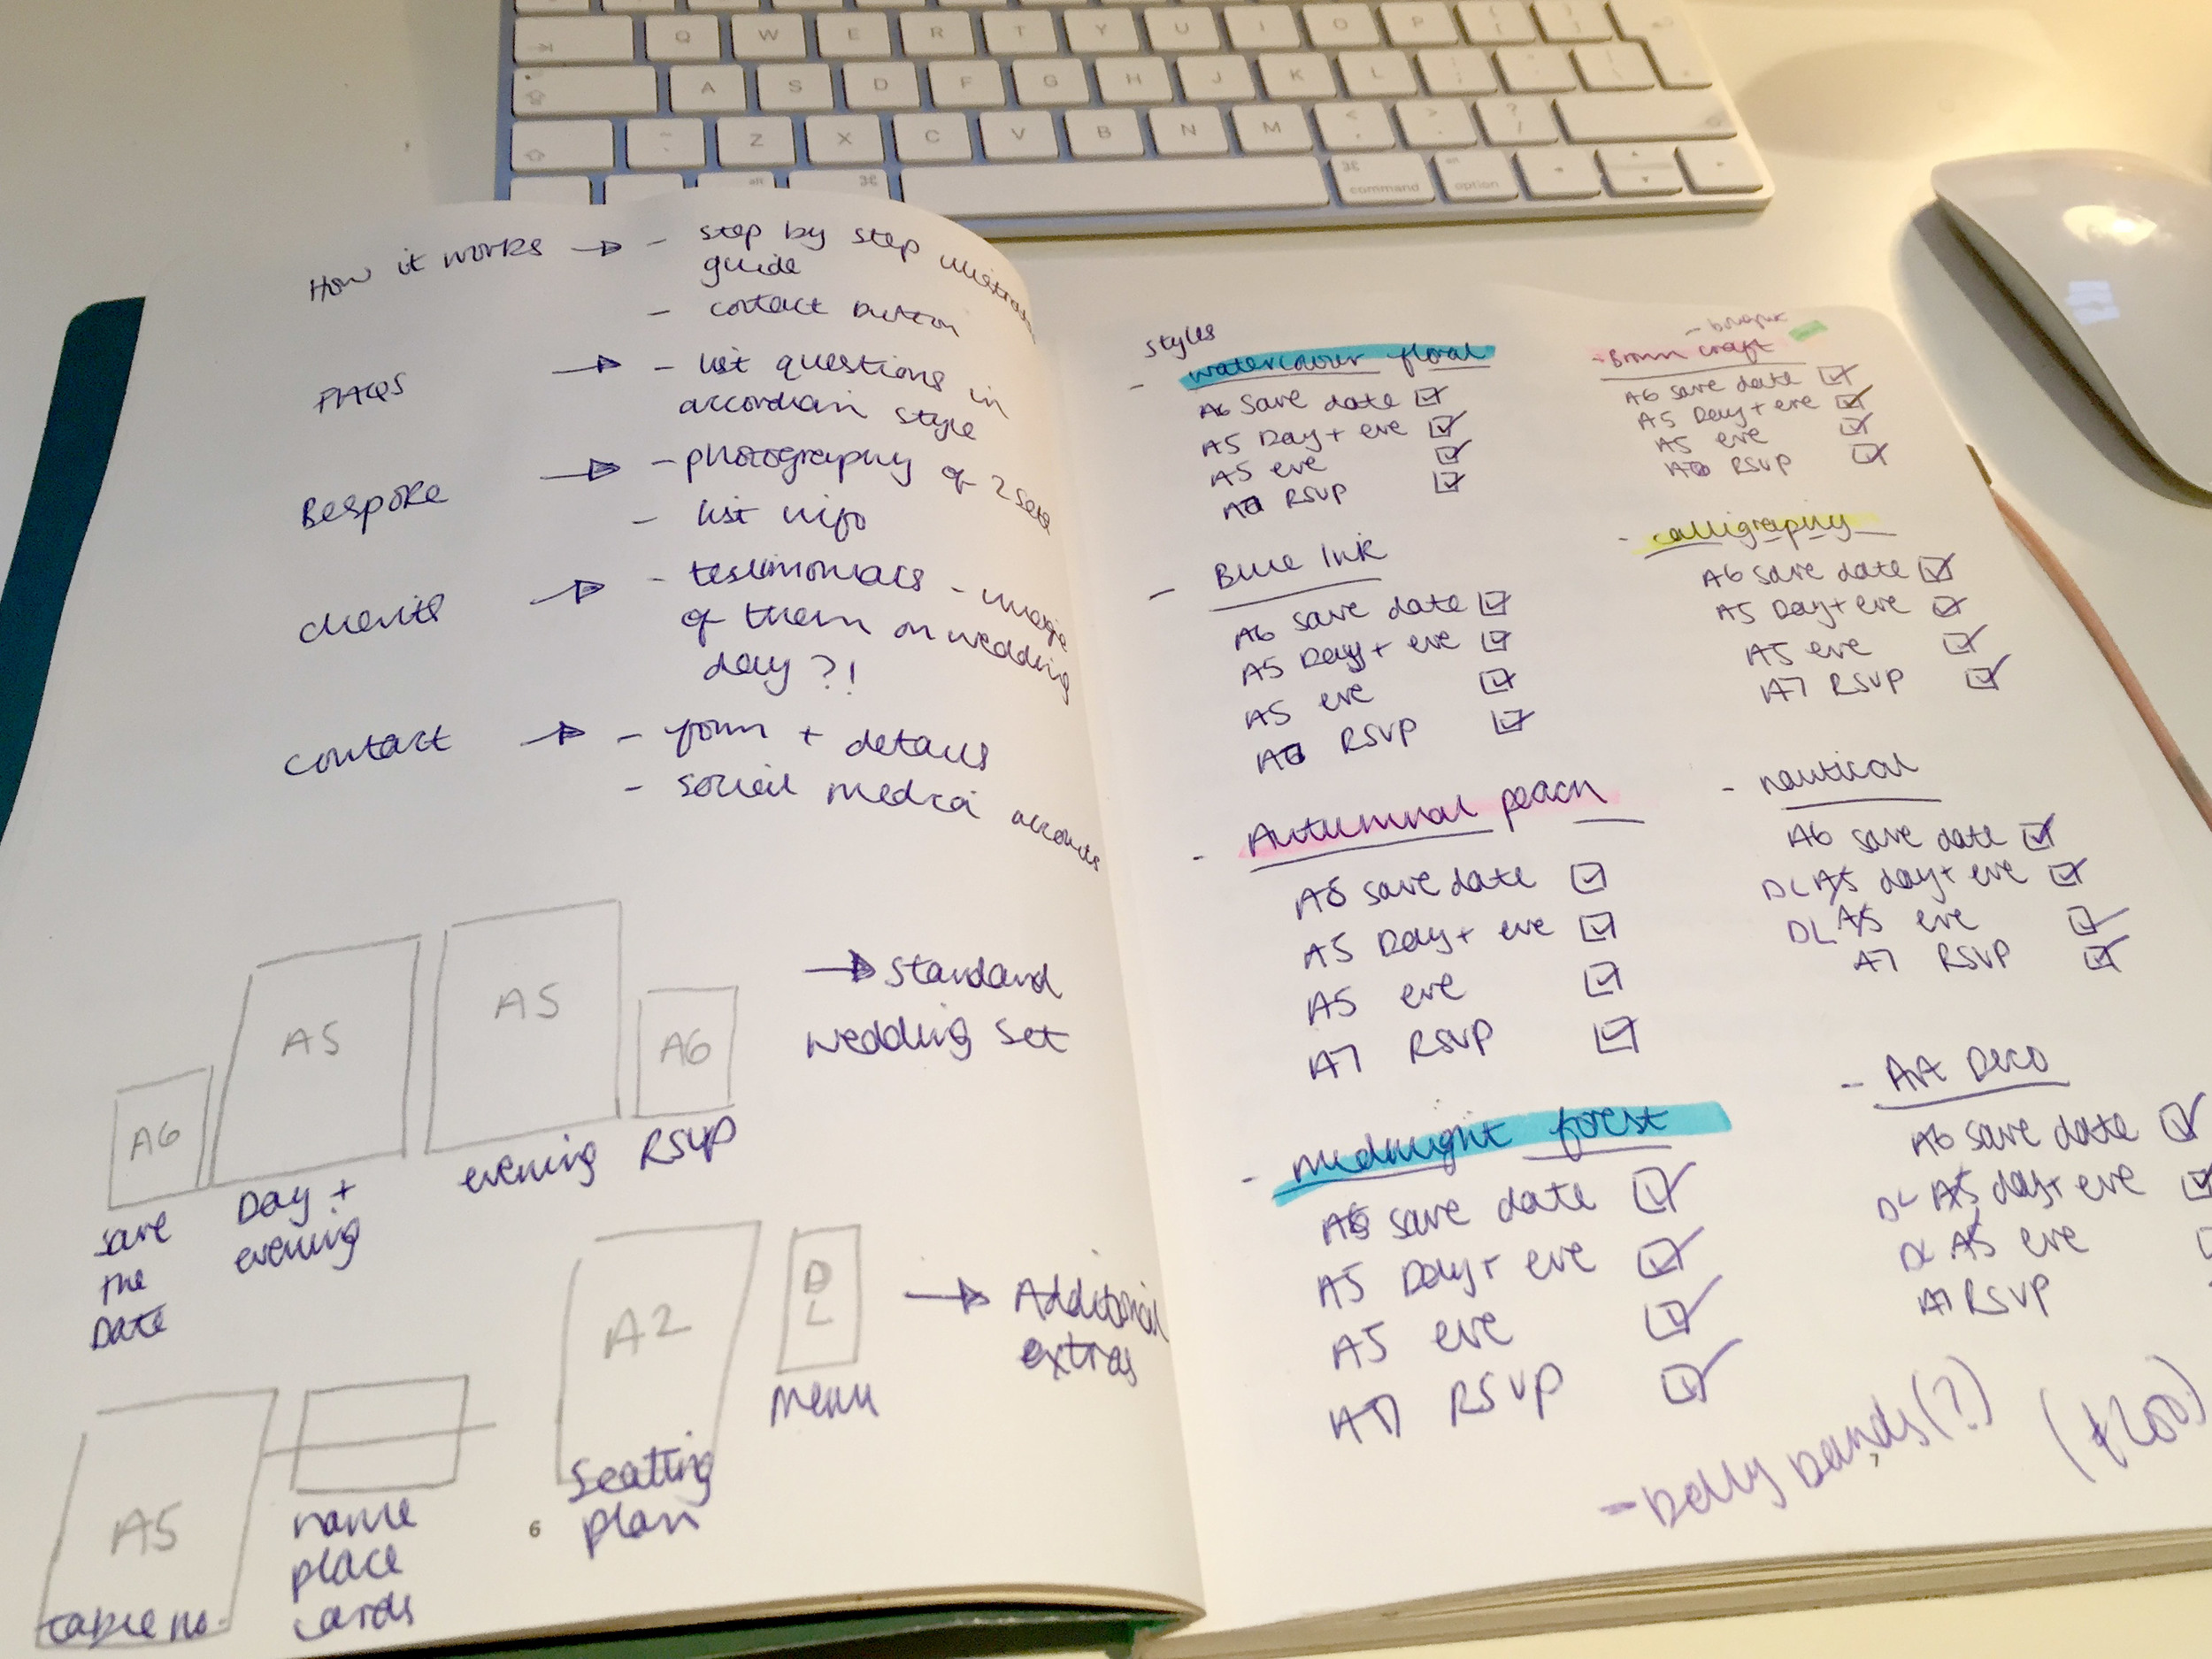 Q W E R T Y U I O P
A S D F G H J K L
Z X C V B N M
alt ⌘ ⌘ command option
How it works → - step by step
guide
- contact button
FAQs → - list questions in
accordian style
Bespoke → - photography of 2 sets
- list info
clients → - testimonials - image
of them on wedding
day ?!
contact → - form + details
- social media accounts
A6 A5 A5 A6
→ standard
wedding set
save
the
Date
Day +
evening
evening
RSVP
A2
D
L
→ Additional
extras
menu
seating
plan
A5
table no.
name
place
cards
6
styles
- watercolour floral
A6 save date ☑
A5 Day + eve ☑
A5 eve ☑
RSVP ☑
- Blue Ink
A6 save date ☑
A5 Day + eve ☑
A5 eve ☑
RSVP ☑
- Autumnal peach
A6 save date ☑
A5 Day + eve ☑
A5 eve ☑
A7 RSVP ☑
- midnight forest
A6 save date ☑
A5 Day + eve ☑
A5 eve ☑
A7 RSVP ☑
- Brown craft
A6 save date ☑
A5 Day + eve ☑
A5 eve ☑
RSVP ☑
- calligraphy
A6 save date ☑
A5 Day + eve ☑
A5 eve ☑
A7 RSVP ☑
- nautical
A6 save date ☑
DL A5 day + eve ☑
DL A5 eve ☑
A7 RSVP ☑
- Art Deco
A6 save date ☑
DL A5 day + eve ☑
DL A5 eve
A7 RSVP
- belly bands (?)